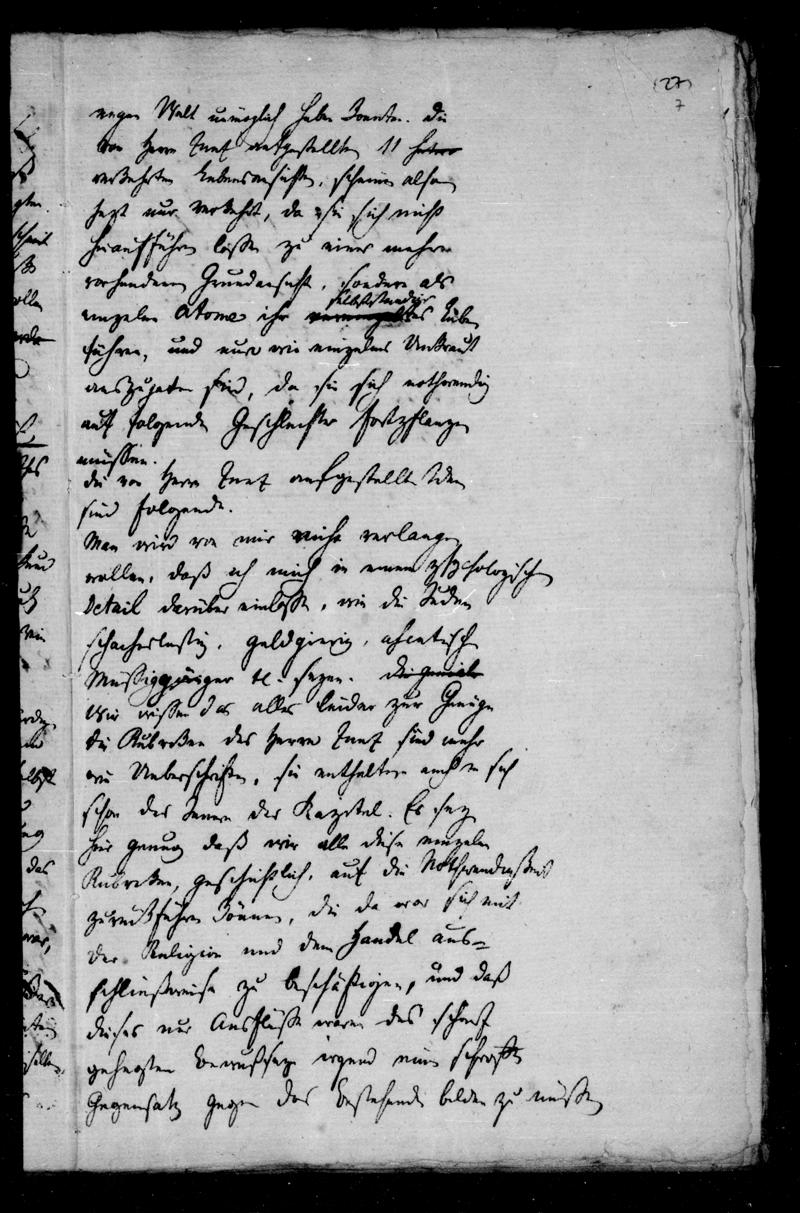 (27)
7
ungen Welt unmöglich haben konnten. Die
von Herrn Tref aufgestellten 11
verkehrten Lebensansichten, scheinen also
jezt nur verkehrt, da sie sich nicht
hinaufführen lassen zu einer mehr
vorhandenen Grundansicht, sondern als
einzelne Atome ihr selbstständiges Leben
führen, und nur wie einzelnes Unkraut
auszujäten sind, da sie sich nothwendig
auf folgende Geschlechter fortpflanzen
müssen.
die von Herrn aufgestellten Ideen
sind folgende.
Man wird von mir nicht verlangen
wollen, daß ich mich in einem psychologischen
Detail darüber einlasse, wie die Juden
schacherlustig, geldgierig, ascetisch
Müssiggänger etc. seyen.
Wir wissen das alles leider zur Genüge
die Rubriken des Herrn sind mehr
wie Ueberschriften, sie enthalten auch in sich
schon das Innere der Kapitel. Es sey
hier genug daß wir alle diese einzelnen
Rubriken, geschichtlich, auf die Nothwendigkeit
zurückführen können, die da war sich mit
der Religion und dem Handel aus-
schliesweise zu beschäftigen, und daß
dieses nur Ausflüsse waren des scharf
gehegten Bewußtseyns irgend einen schroffen
Gegensatz gegen das Bestehende bilden zu müssen